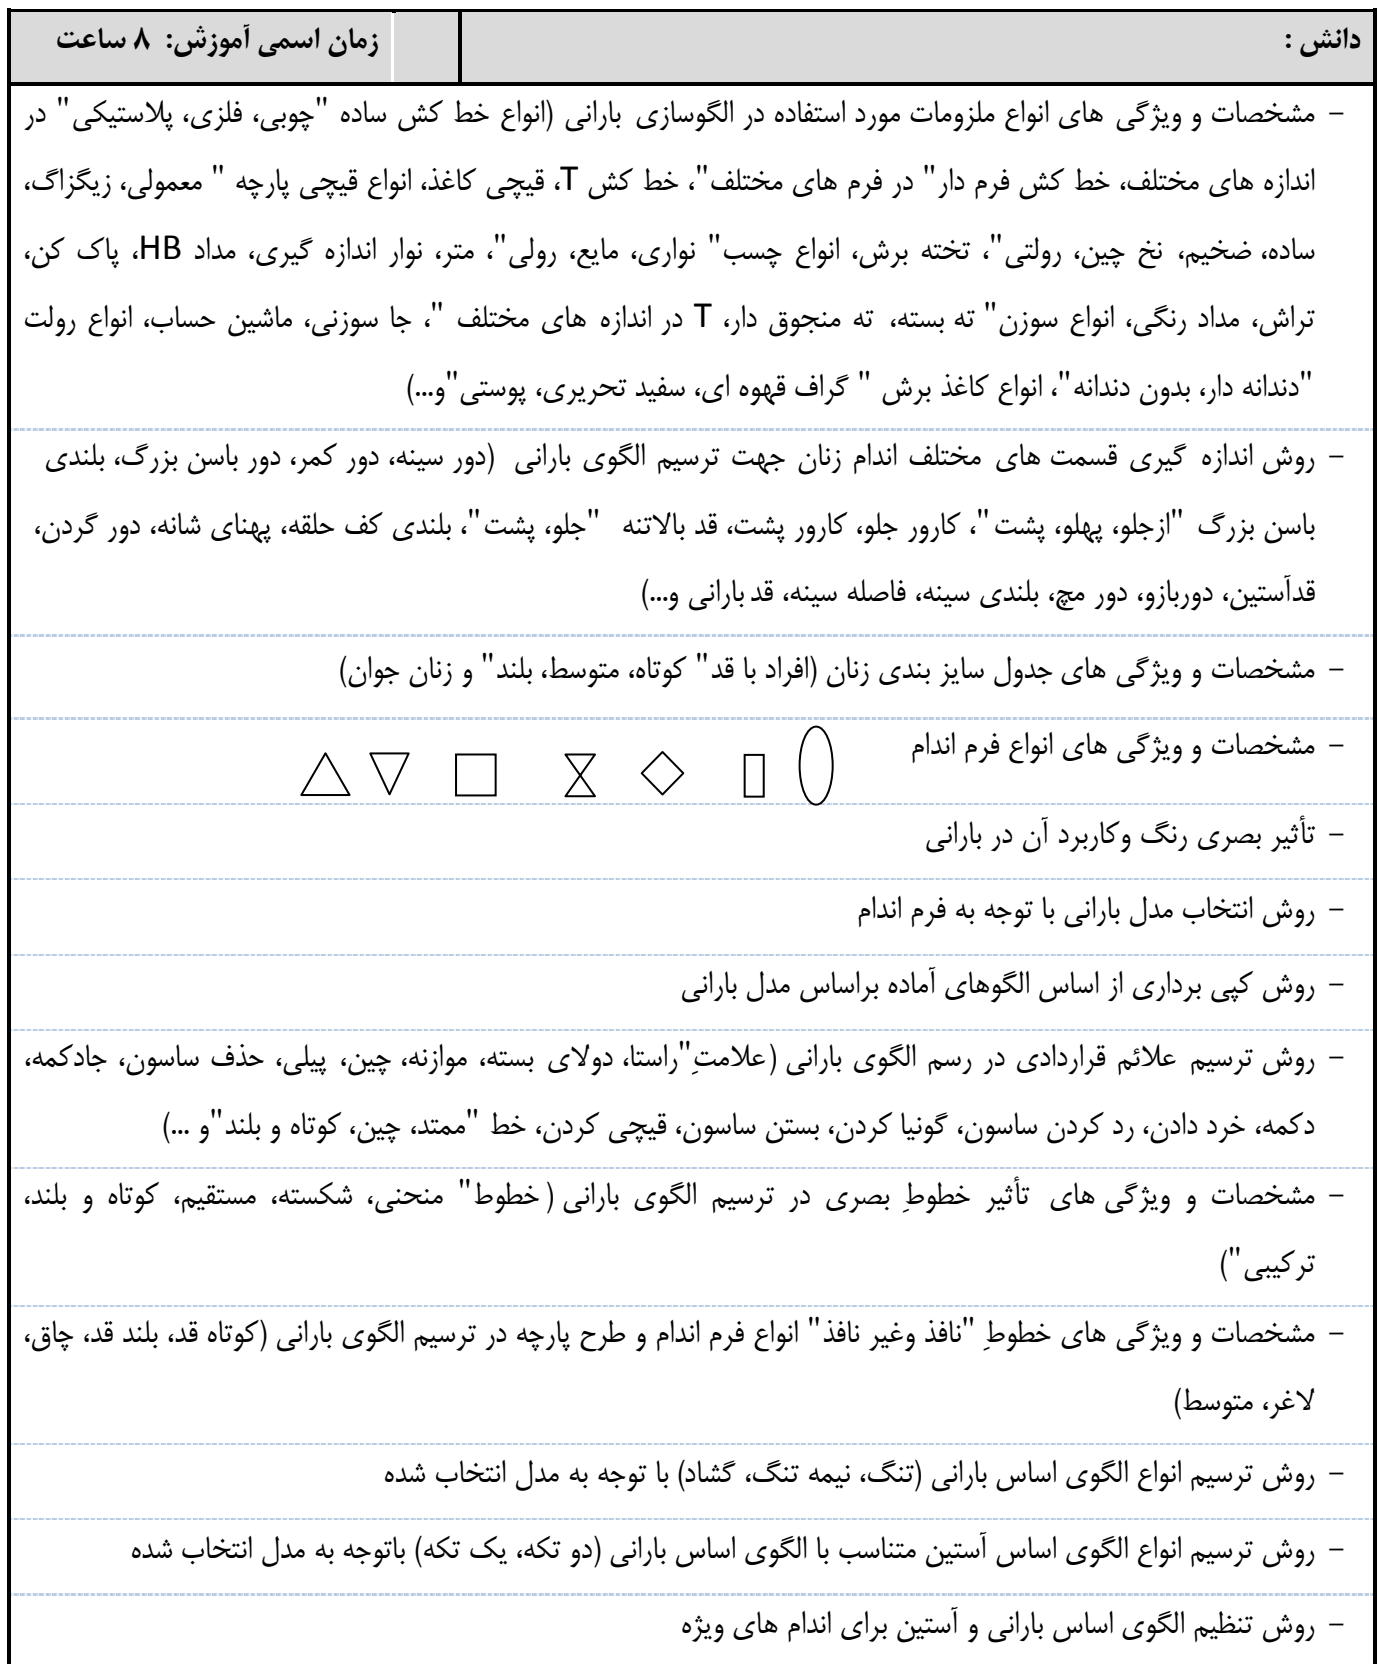 دانش : زمان اسمی آموزش: ۸ ساعت
- مشخصات و ویژگی های انواع ملزومات مورد استفاده در الگوسازی بارانی (انواع خط کش ساده "چوبی، فلزی، پلاستیکی" در
اندازه های مختلف، خط کش فرم دار" در فرم های مختلف"، خط کش T، قیچی کاغذ، انواع قیچی پارچه " معمولی، زیگزاگ،
ساده، ضخیم، نخ چین، رولتی"، تخته برش، انواع چسب" نواری، مایع، رولی"، متر، نوار اندازه گیری، مداد HB، پاک کن،
تراش، مداد رنگی، انواع سوزن" ته بسته، ته منجوق دار، T در اندازه های مختلف "، جا سوزنی، ماشین حساب، انواع رولت
"دندانه دار، بدون دندانه"، انواع کاغذ برش " گراف قهوه ای، سفید تحریری، پوستی"و...)
- روش اندازه گیری قسمت های مختلف اندام زنان جهت ترسیم الگوی بارانی (دور سینه، دور کمر، دور باسن بزرگ، بلندی
باسن بزرگ "ازجلو، پهلو، پشت"، کارور جلو، کارور پشت، قد بالاتنه "جلو، پشت"، بلندی کف حلقه، پهنای شانه، دور گردن،
قدآستین، دوربازو، دور مچ، بلندی سینه، فاصله سینه، قد بارانی و...)
- مشخصات و ویژگی های جدول سایز بندی زنان (افراد با قد" کوتاه، متوسط، بلند" و زنان جوان)
- مشخصات و ویژگی های انواع فرم اندام
- تأثیر بصری رنگ وکاربرد آن در بارانی
- روش انتخاب مدل بارانی با توجه به فرم اندام
- روش کپی برداری از اساس الگوهای آماده براساس مدل بارانی
- روش ترسیم علائم قراردادی در رسم الگوی بارانی (علامتِ"راستا، دولای بسته، موازنه، چین، پیلی، حذف ساسون، جادکمه،
دکمه، خرد دادن، رد کردن ساسون، گونیا کردن، بستن ساسون، قیچی کردن، خط "ممتد، چین، کوتاه و بلند"و ...)
- مشخصات و ویژگی های تأثیر خطوطِ بصری در ترسیم الگوی بارانی ( خطوط" منحنی، شکسته، مستقیم، کوتاه و بلند،
ترکیبی")
- مشخصات و ویژگی های خطوطِ "نافذ وغیر نافذ" انواع فرم اندام و طرح پارچه در ترسیم الگوی بارانی (کوتاه قد، بلند قد، چاق،
لاغر، متوسط)
- روش ترسیم انواع الگوی اساس بارانی (تنگ، نیمه تنگ، گشاد) با توجه به مدل انتخاب شده
- روش ترسیم انواع الگوی اساس آستین متناسب با الگوی اساس بارانی (دو تکه، یک تکه) باتوجه به مدل انتخاب شده
- روش تنظیم الگوی اساس بارانی و آستین برای اندام های ویژه